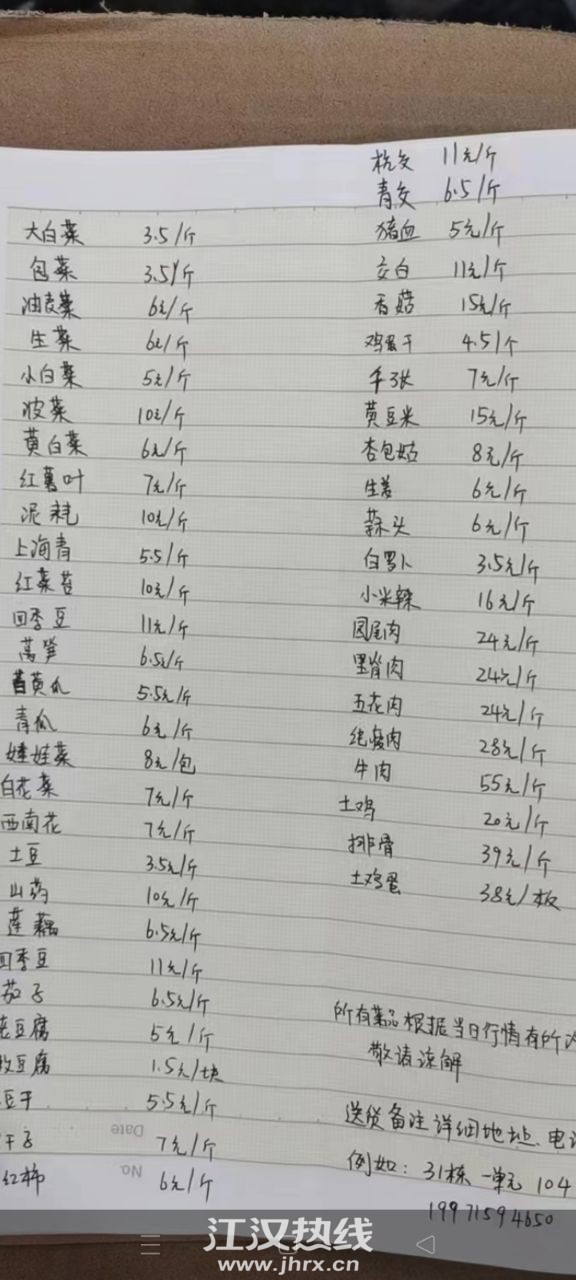 大白菜 3.5/斤
包菜 3.5/斤
油麦菜 6元/斤
生菜 6元/斤
小白菜 5元/斤
波菜 10元/斤
黄白菜 6元/斤
红薯叶 7元/斤
泥耗 10元/斤
上海青 5.5/斤
红菜苔 10元/斤
四季豆 11元/斤
莴笋 6.5元/斤
黄瓜 5.5元/斤
青瓜 6元/斤
娃娃菜 8元/包
白花菜 7元/斤
西南花 7元/斤
土豆 3.5元/斤
山药 10元/斤
莲藕 6.5元/斤
四季豆 11元/斤
茄子 6.5元/斤
老豆腐 5元/斤
豆腐 1.5元/块
豆干 5.5元/斤
干子 7元/斤
红柿 6元/斤
Date
No.
杭交 11元/斤
青交 6.5/斤
猪血 5元/斤
交白 11元/斤
香菇 15元/斤
鸡蛋干 4.5/个
千张 7元/斤
黄豆米 15元/斤
杏包菇 8元/斤
生姜 6元/斤
蒜头 6元/斤
白罗卜 3.5元/斤
小米辣 16元/斤
园尾肉 24元/斤
里脊肉 24元/斤
五花肉 24元/斤
纯瘦肉 28元/斤
牛肉 55元/斤
土鸡 20元/斤
排骨 39元/斤
土鸡蛋 38元/板
所有菜品根据当日行情有所
敬请谅解
送货备注详细地址、电
例如：31栋一单元104
19971594650
江汉热线
www.jhrx.cn